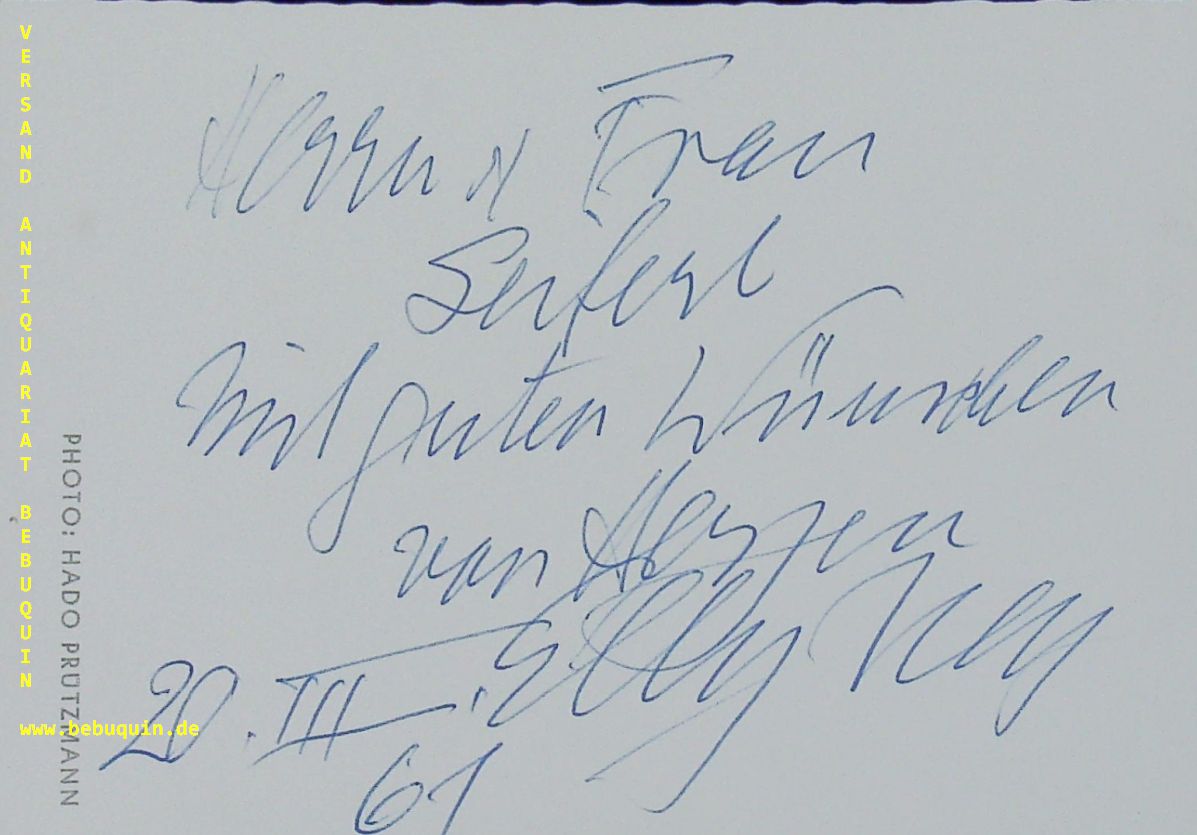 Herrn u Frau
Seifert
Mit guten Wünschen
von Herzen
Elly Ney
20. III.
61
PHOTO: HADO PRÜTZMANN
VERSAND ANTIQUARIAT BEBUQUIN
www.bebuquin.de